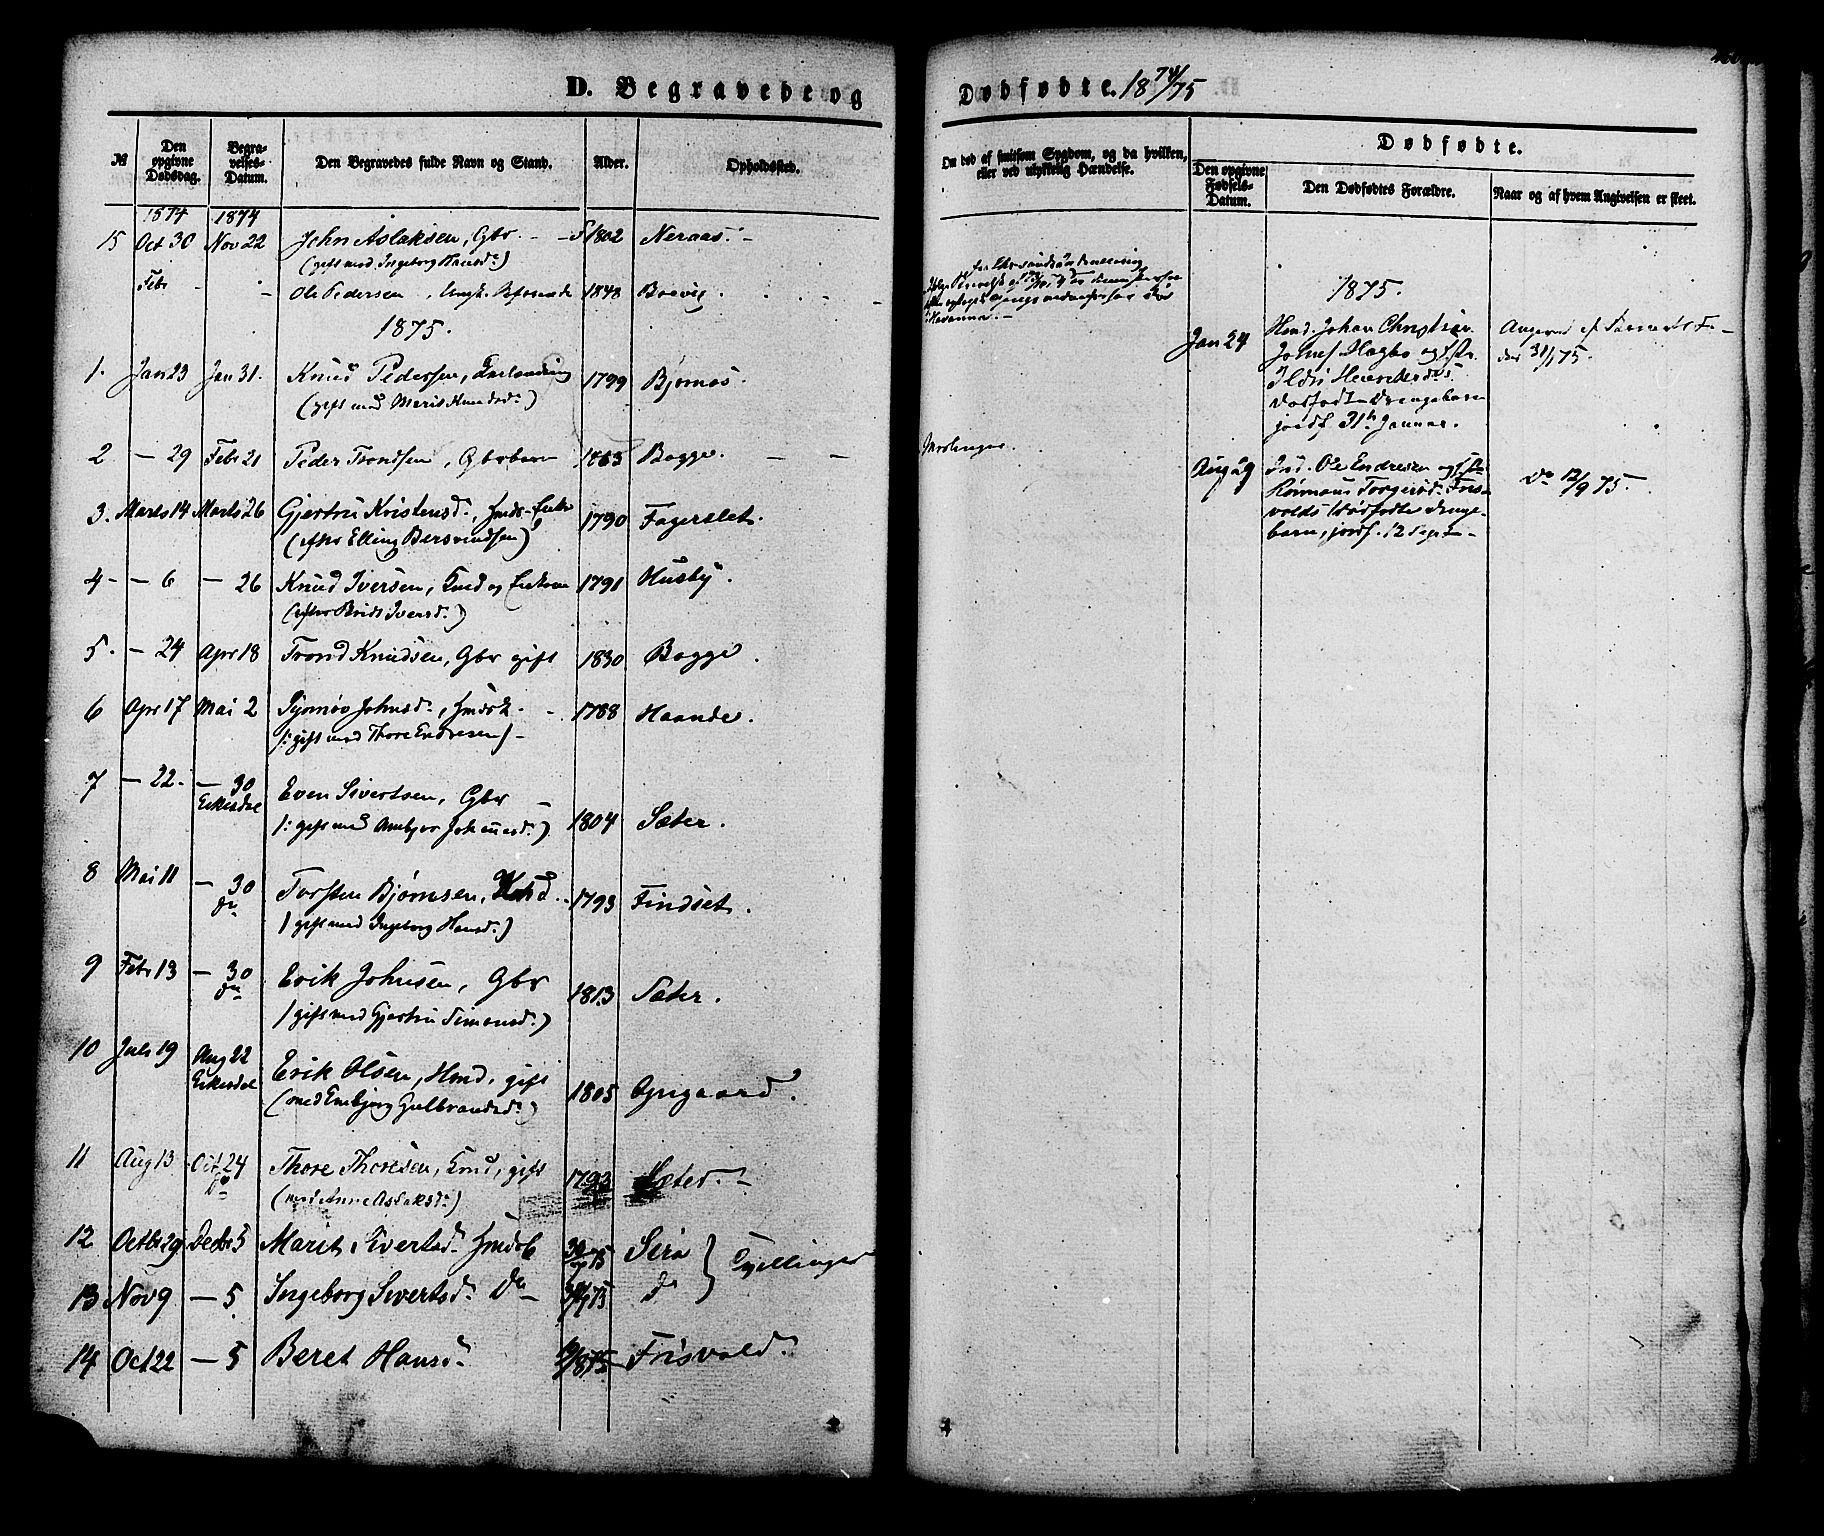 D. Begravede og
№
Den opgivne Dødsdag.
Begravelses-Datum.
Den Begravedes fulde Navn og Stand.
Alder.
Opholdssted.
1874 1874
15 Oct 30 Nov 22 John Aslaksen, Gbr. 1802 Neraas.
(gift med Ingeborg Hansd.)
Febr - - Ole Pedersen, 1848 Boevig
1875.
1. Jan 23 Jan 31. Knud Pedersen, 1799 Bjørnøs.
(gift med Marit Knudsd.)
2 — 29 Febr 21 Peder Trondsen, Gbrbarn 1863 Bogge. — —
3. Marts 14 Marts 26 Gjertru Kristensd., Hmds-Enke 1790 Fagerslet.
(efter Elling Bersvendsen)
4 - — 6 — 26 Knud Iversen, Kmd og Enkem 1791 Husby.
(efter Brit Iversd.)
5. — 24 Apr 18 Trond Knudsen, Gbr gift 1830 Bogge.
6 Apr 17 Mai 2 Johnsd., Hmdsk. 1788 Haande.
/: gift med Thore Endresen/-
7 — 22. — 30 Even Sivertsen, Gbr
Eikisdal
/: gift med Johannesd.) 1804 Sæter.
8 Mai 11 — 30 Torsten Bjørnsen, Kmd. 1793 Findset.
do
/ gift med Ingeborg Hansd.)
9 Febr 13 — 30 Erik Johnsen, Gbr
do 1813 Sæter.
/ gift med Gjertru Simonsd.)
10 Juli 19 Aug 22 Erik Olsen, Hmd, gift
Eikisdal 1805 Opigaard.
(med Embjørg Gulbrandsd.)
11 Aug 13 Oct 24 Thore Thoresen, Kmd, gift 1793 Sæter. -
do (med Anne Aslaksd.)
12 Octbr 29 Decbr 5 Marit Sivertsd. Hmdsb 75 Sira } Tvillinger
13 Nov 9 — 5 Ingeborg Sivertsd. Do 75 do
14 Oct 22 — 5 Beret Hansd. 1875 Frisvold.
Dødfødte. 18 74/75
Om død af smitsom Sygdom, og da hvilken, eller ved ulykkelig Hændelse.
Dødfødte.
Den opgivne Fødsels-Datum.
Den Dødfødtes Forældre.
Naar og af hvem Angivelsen er skeet.
Havanna. -
1875.
Jan 24 Hmd. Johan Christian
Angivet af Barnets Fa-
der 31/1 75.
Ildri Henriksd.
dødfødt Drengebarn
jordf. 31te Januar.
Meslinger.
Aug 29 Ind. Ole Endresen og H.
Do 12/9 75.
Rønnaug Torgersd. Fris-
volds dødfødte Drenge-
barn, jordf. 12 Sept -